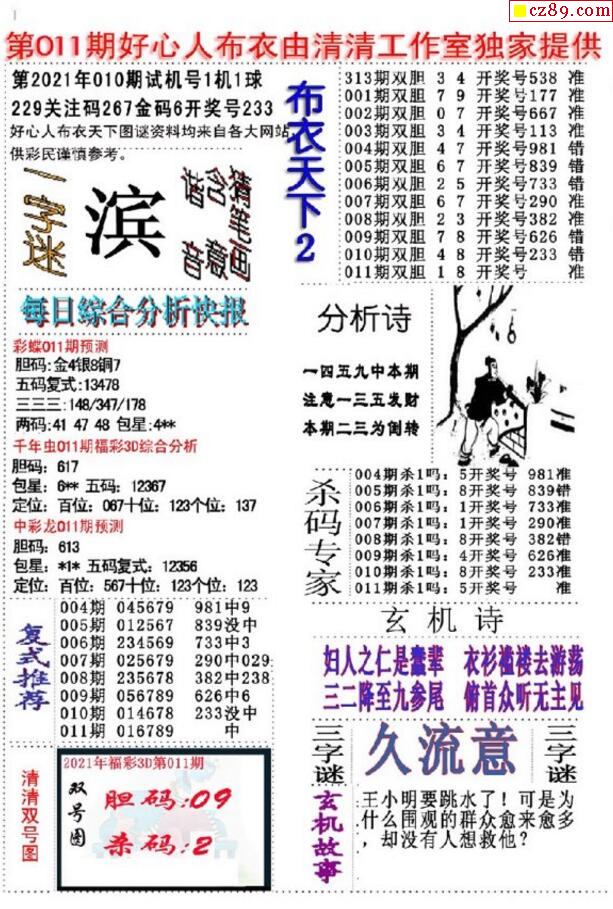 cz89.com
第011期好心人布衣由清清工作室独家提供
第2021年010期试机号1机1球
229关注码267金码6开奖号233
好心人布衣天下图谜资料均来自各大网站,
供彩民谨慎参考。
一字迷
滨
谐音
含意
猜笔画
布衣天下2
313期双胆 3 4 开奖号538 准
001期双胆 7 9 开奖号177 准
002期双胆 0 7 开奖号667 准
003期双胆 3 4 开奖号113 准
004期双胆 4 7 开奖号981 错
005期双胆 6 7 开奖号839 错
006期双胆 2 5 开奖号733 错
007期双胆 6 7 开奖号290 准
008期双胆 2 3 开奖号382 准
009期双胆 7 8 开奖号626 错
010期双胆 4 8 开奖号233 错
011期双胆 1 8 开奖号 准
每日综合分析快报
彩蝶011期预测
胆码:金4银8铜7
五码复式:13478
三三三:148/347/178
两码:41 47 48 包星:4**
千年虫011期福彩3D综合分析
胆码: 617
包星: 6** 五码: 12367
定位: 百位: 067十位: 123个位: 137
中彩龙011期预测
胆码: 613
包星: *1* 五码复式: 12356
定位: 百位: 567十位: 123个位: 123
分析诗
一四五九中本期
注意一三五发财
本期二三为倒转
杀码专家
004期杀1吗: 5开奖号 981准
005期杀1吗: 8开奖号 839错
006期杀1吗: 1开奖号 733准
007期杀1吗: 1开奖号 290准
008期杀1吗: 8开奖号 382错
009期杀1吗: 4开奖号 626准
010期杀1吗: 8开奖号 233准
011期杀1吗: 5开奖号 准
复式推荐
004期 045679 981中9
005期 012567 839没中
006期 234569 733中3
007期 025679 290中029
008期 235678 382中238
009期 056789 626中6
010期 014678 233没中
011期 016789 中
玄机诗
妇人之仁是蠢辈 衣衫褴褛去游荡
三二降至九参尾 俯首众听无主见
三字谜
久流意
三字谜
清清双号图
2021年福彩3D第011期
双号图
胆码:09
杀码:2
玄机故事
王小明要跳水了！可是为
什么围观的群众愈来愈多
，却没有人想救他？